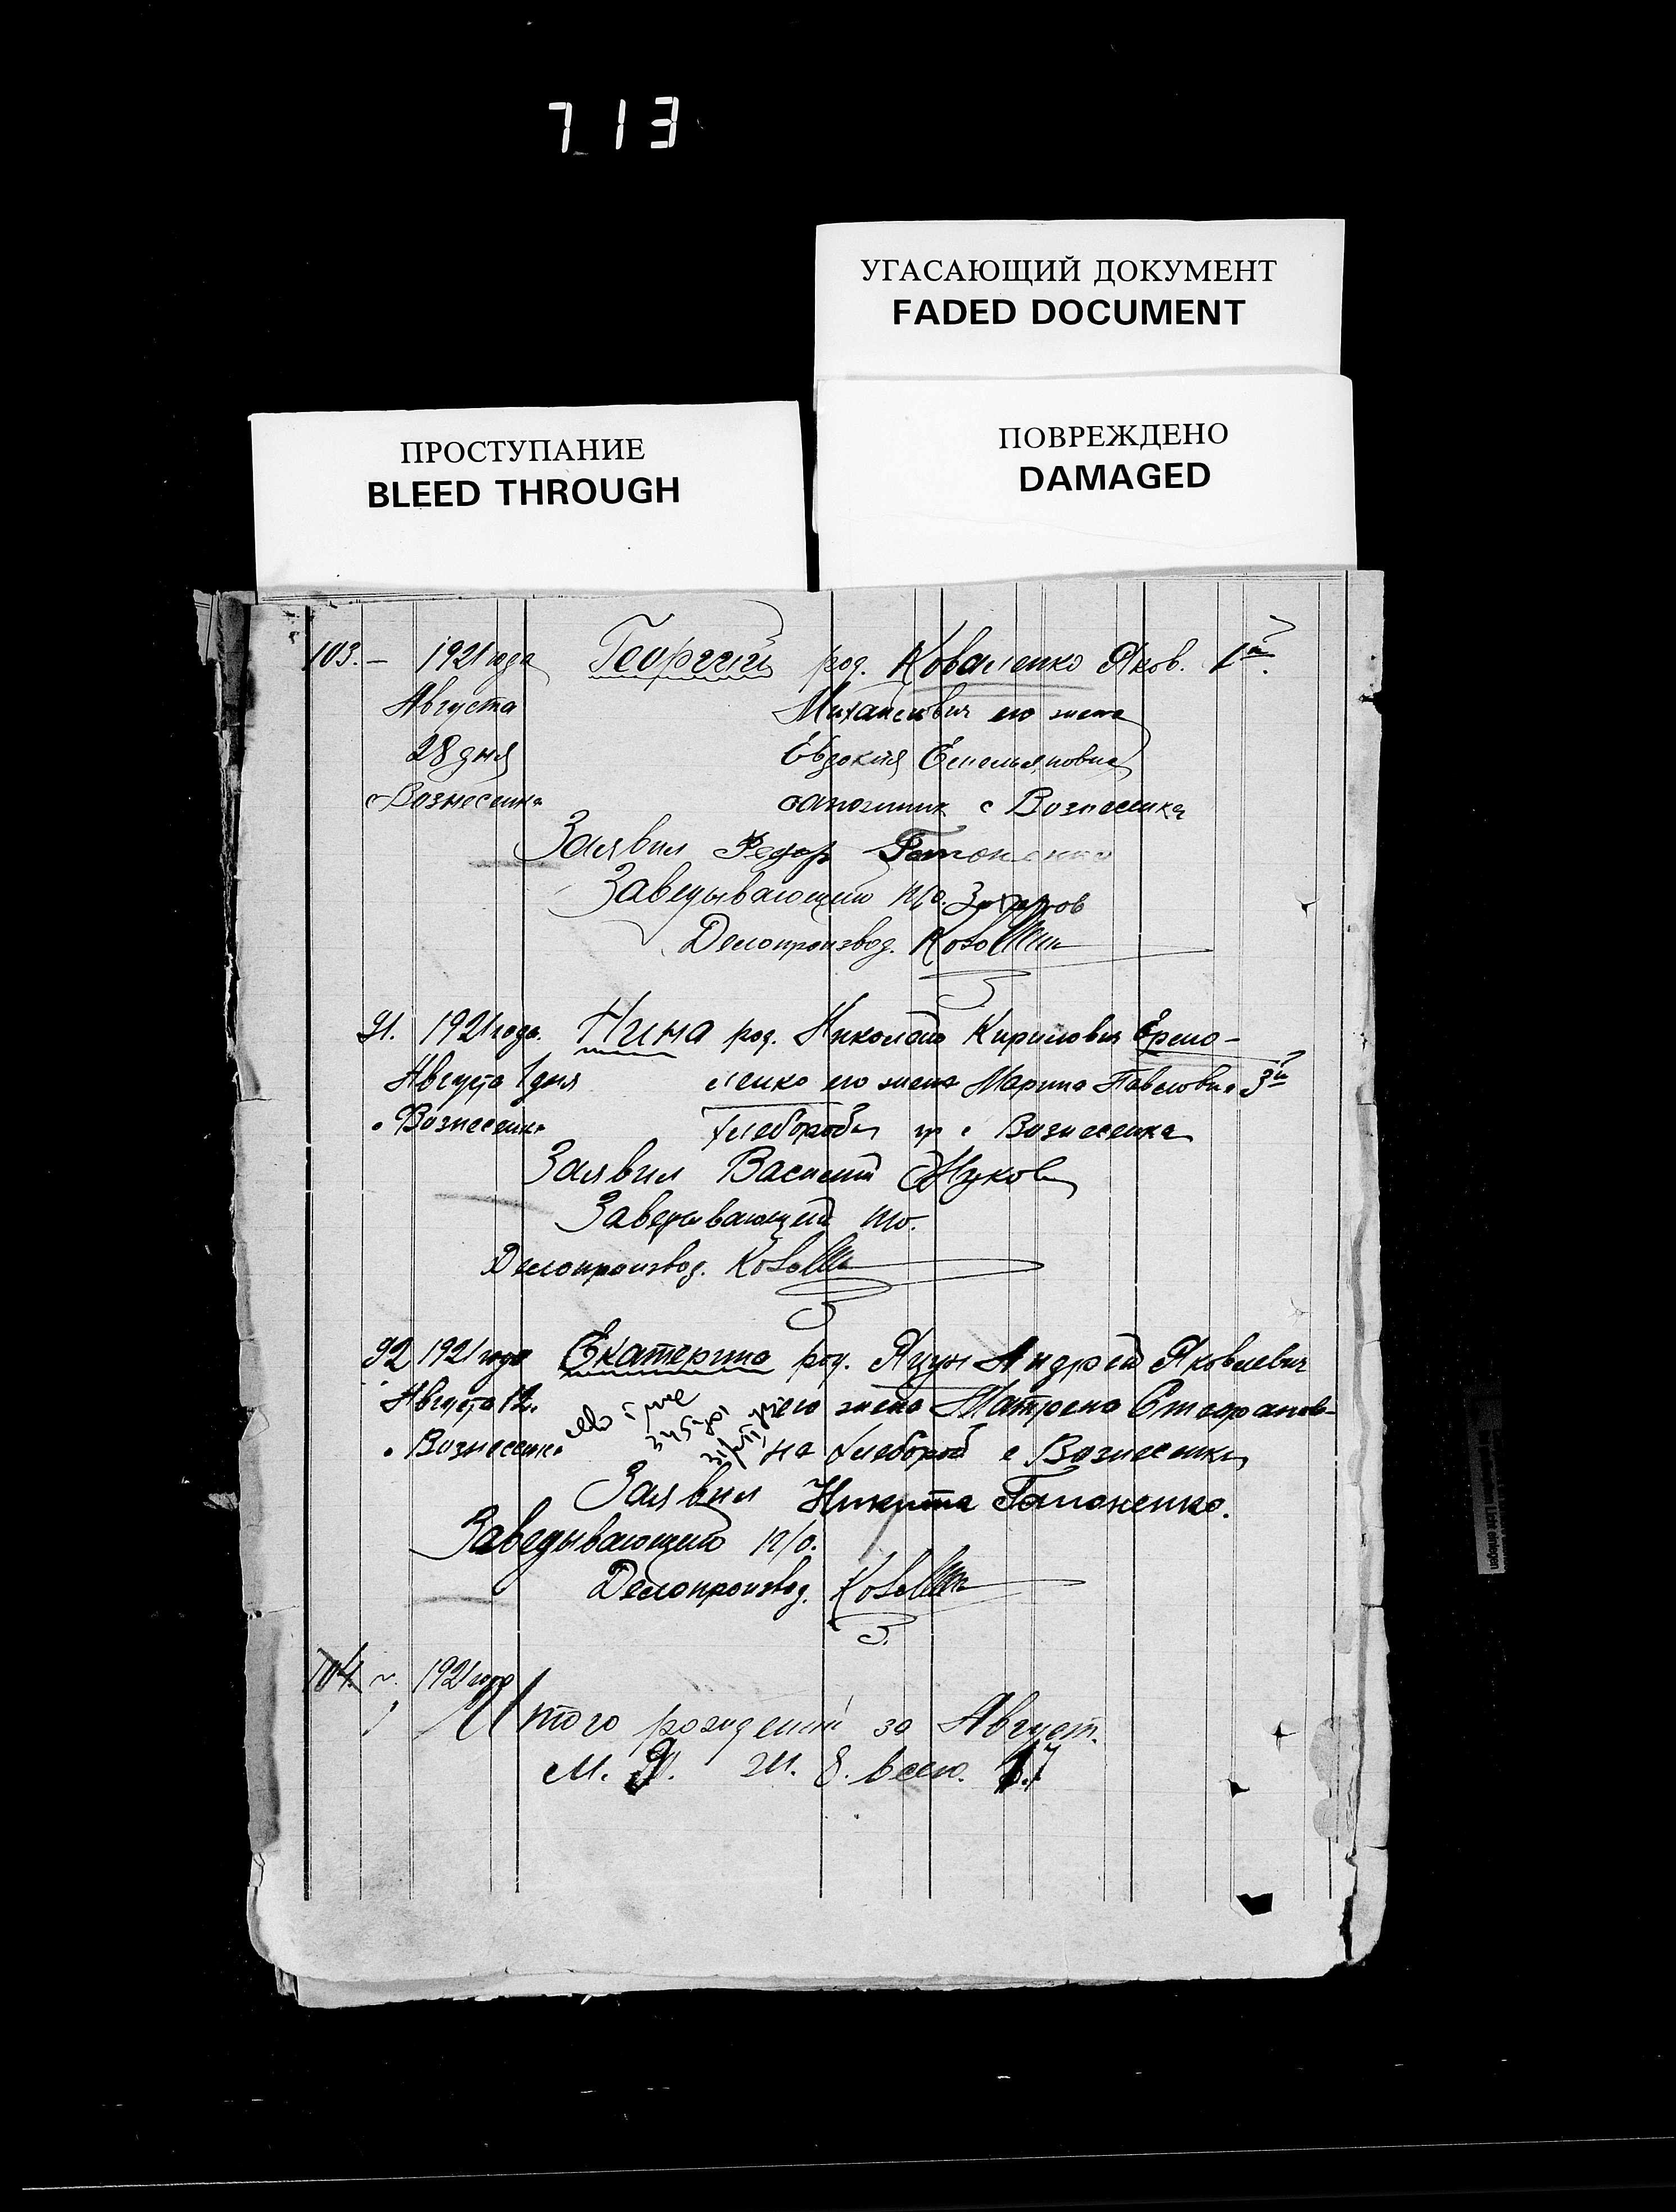 713
УГАСАЮЩИЙ ДОКУМЕНТ
FADED DOCUMENT
ПРОСТУПАНИЕ
BLEED THROUGH
ПОВРЕЖДЕНО
DAMAGED
103. — 1921 года Георгий род. Коваленко Яков. 1й
Августа Михайлович его жена
28 дня Евдокия Емельяновна
с Вознесенка сапожник с Вознесенка
Заявил Федор Гапоненко
Заведывающий п/о. Захаров
Делопроизвод.
91. 1921 года. Нина род. Николай Кирилович Ермо-
Августа 1 дня ленко его жена Марина Павловна 3й
с Вознесенка хлебороб гр с Вознесенка
Заявил Василий Жуков
Заведывающий п/о.
Делопроизвод.
92 1921 года Екатерина род. Яцун Андрей Яковлевич
Августа 12. его жена Матрена Стефанов-
с Вознесенка на хлебороб с Вознесенка
Заявил Никита Гапоненко.
Заведывающий п/о.
Делопроизвод.
104. 1921 года
Итого рождений за Август.
М. 9. Ж. 8. всего. 17